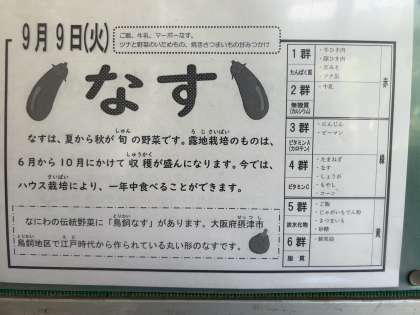 ９月９日(火)
ご飯、牛乳、マーボーなす、
ツナと野菜のいためもの、焼きさつまいもの甘みつかけ
なす
なすは、夏から秋が旬の野菜です。露地栽培のものは、
６月から１０月にかけて収穫が盛んになります。今では、
ハウス栽培により、一年中食べることができます。
なにわの伝統野菜に「鳥飼なす」があります。大阪府摂津市
鳥飼地区で江戸時代から作られている丸い形のなすです。
１群
たんぱく質
・牛ひき肉
・豚ひき肉
・ツナ缶
２群
無機質
(カルシウム)
・牛乳
赤
３群
ビタミンA
(カロテン)
・にんじん
・ピーマン
４群
ビタミンC
・たまねぎ
・なす
・しょうが
・もやし
・コーン
緑
５群
炭水化物
・ご飯
・じゃがいもでん粉
・さつまいも
・砂糖
６群
脂質
黄